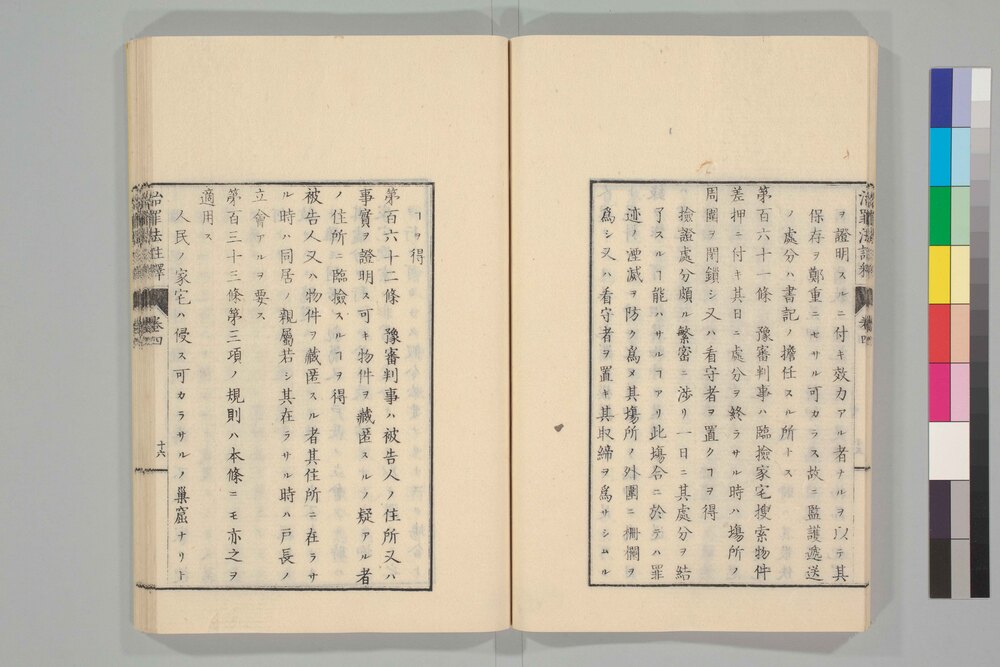 ヲ證明スルニ付キ效力アル者ナルヲ以テ其
保存ヲ鄭重ニセサル可カラス故ニ監護遞送
ノ處分ハ書記ノ擔任スル所トス
第百六十一條　豫審判事ハ臨檢家宅搜索物件
差押ニ付キ其日ニ處分ヲ終ラサル時ハ塲所ノ
周圍ヲ閉鎖シ又ハ看守者ヲ置クヿヲ得
檢證處分頗ル繁密ニ渉リ一日ニ其處分ヲ結
了スルヿ能ハサルヿアリ此塲合ニ於テハ罪
迹ノ湮滅ヲ防ク爲メ其塲所ノ外圍ニ柵欄ヲ
爲シ又ハ看守者ヲ置キ其取締ヲ爲サシムル
ヿヲ得
第百六十二條　豫審判事ハ被告人ノ住所又ハ
事實ヲ證明ス可キ物件ヲ藏匿スルノ疑アル者
ノ住所ニ臨檢スルヿヲ得
被告人又ハ物件ヲ藏匿スル者其住所ニ在ラサ
ル時ハ同居ノ親屬若シ其在ラサル時ハ戸長ノ
立會アルヲ要ス
第百三十三條第三項ノ規則ハ本條ニモ亦之ヲ
適用ス
人民ノ家宅ハ侵ス可カラサルノ巢窟ナリト
治罪法註釋
卷四
十六